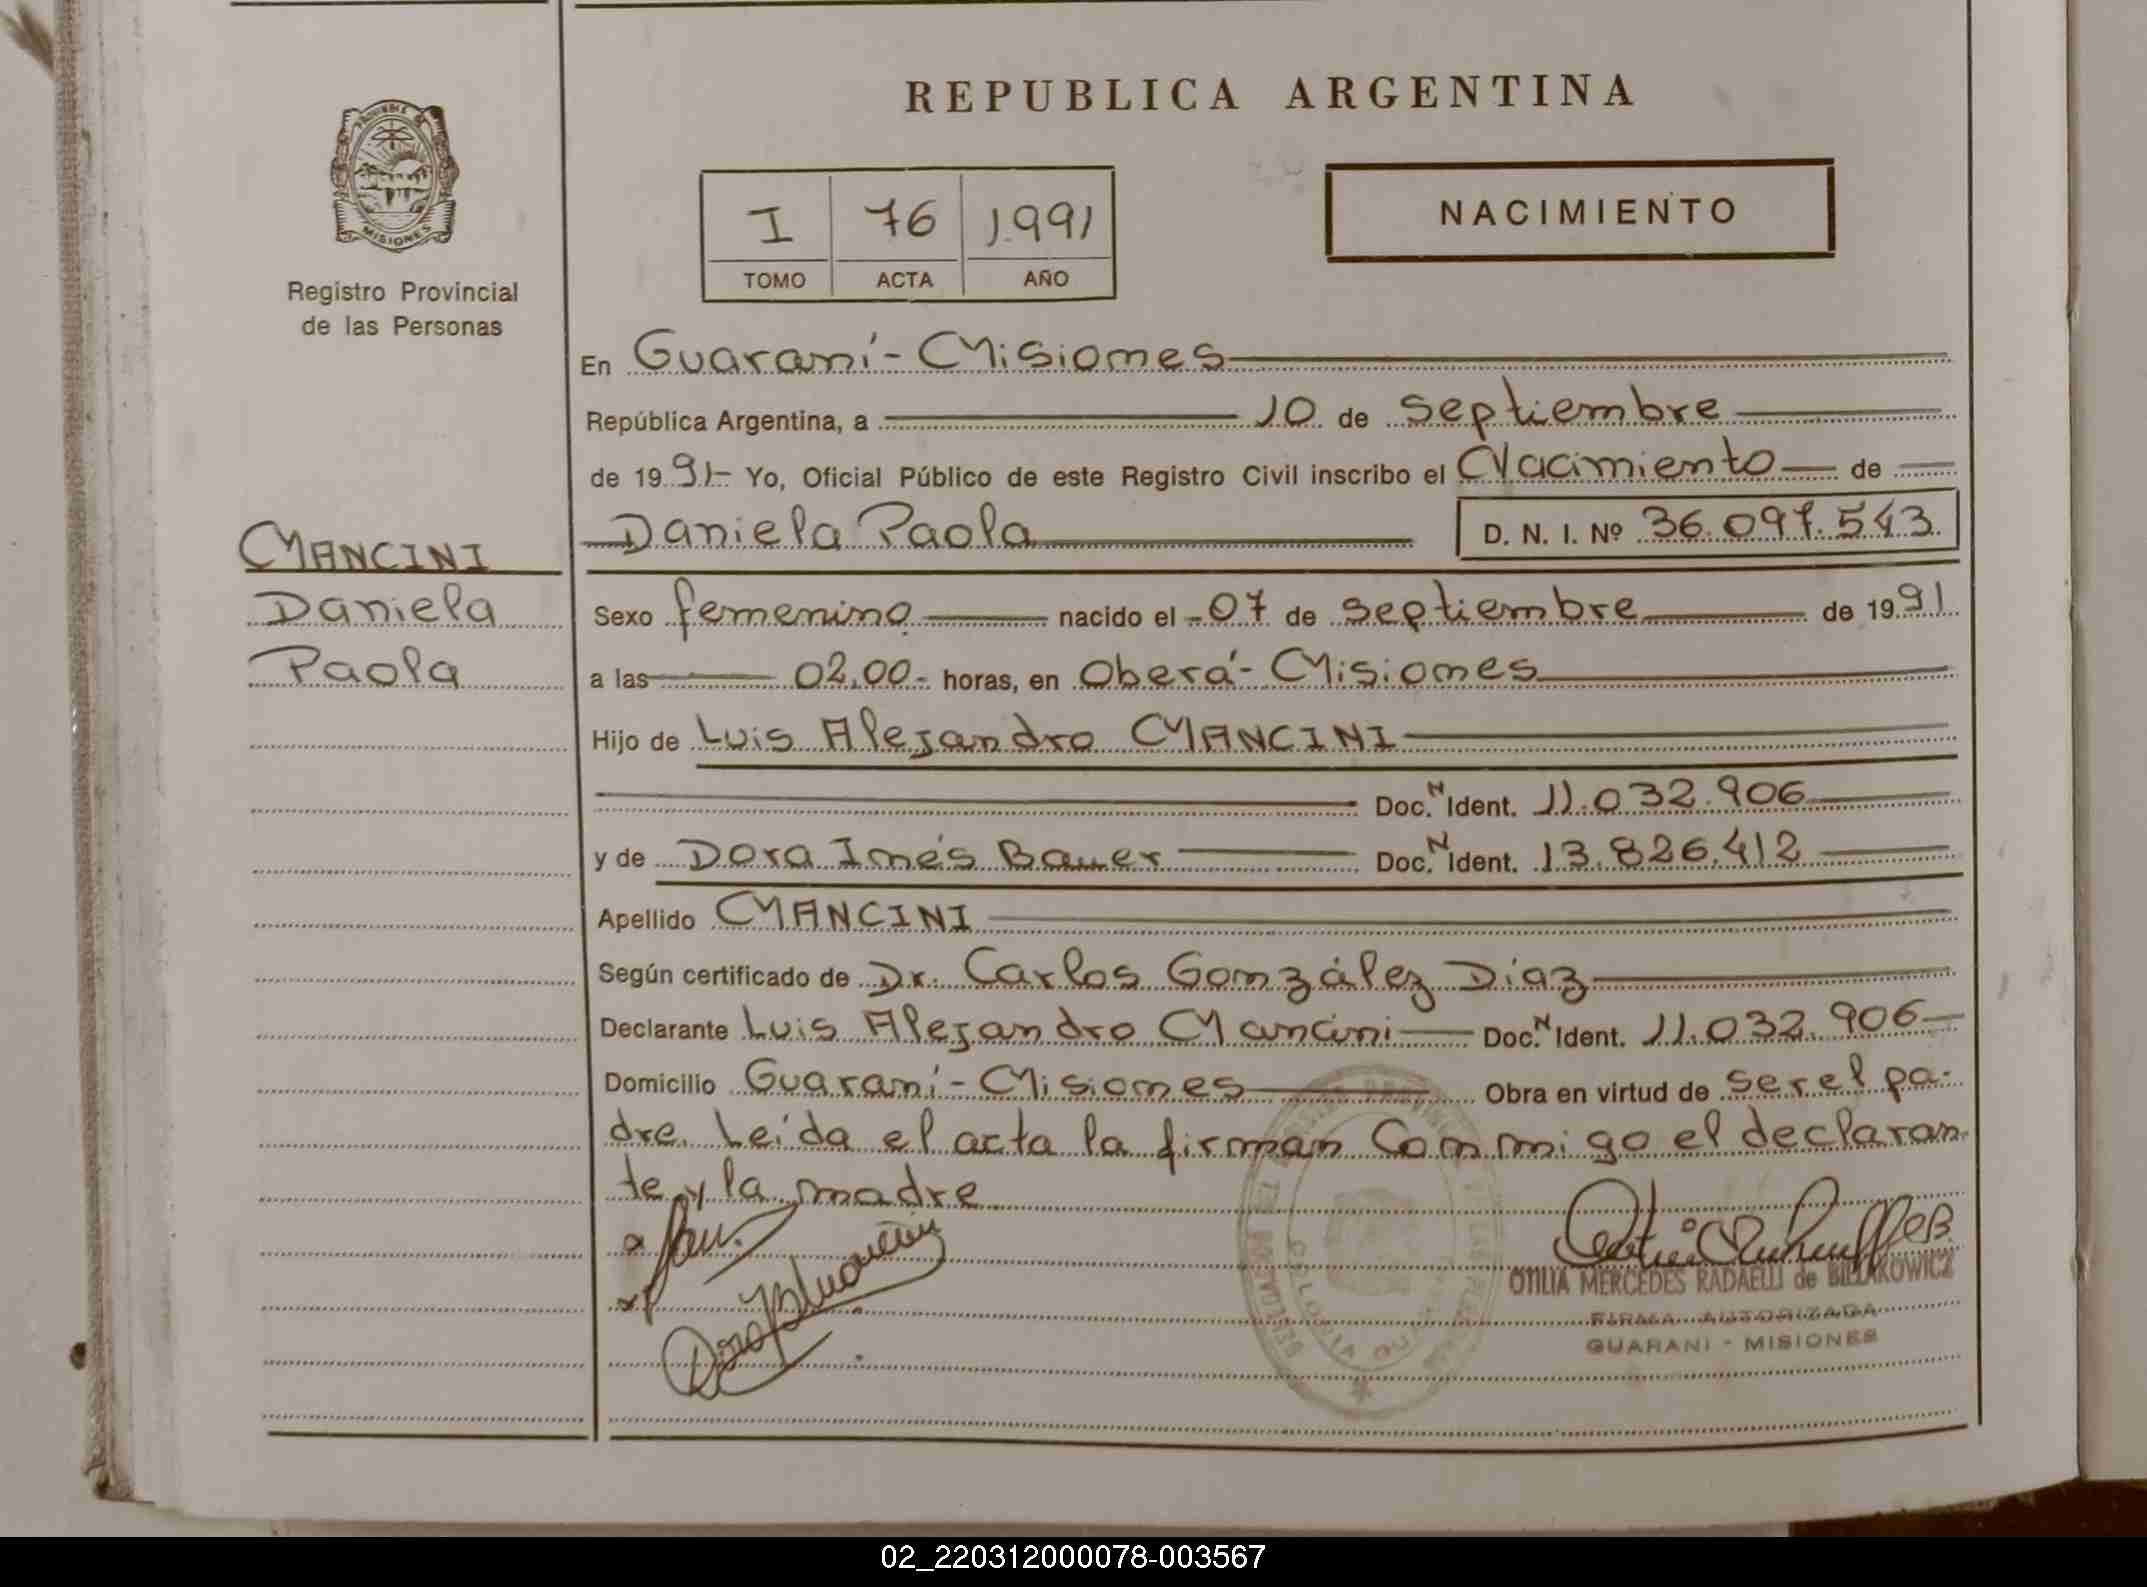 REPUBLICA ARGENTINA
PROVINCIA
MISIONES
Registro Provincial
de las Personas
I 76 1.991
TOMO ACTA AÑO
NACIMIENTO
En Guaraní - Misiones
República Argentina, a 10 de septiembre
de 1991- Yo, Oficial Público de este Registro Civil inscribo el Nacimiento de
Daniela Paola D. N. I. Nº 36.097.543.
MANCINI
Daniela
Paola
Sexo femenino nacido el 07 de septiembre de 1991
a las 02,00- horas, en Oberá - Misiones
Hijo de Luis Alejandro MANCINI
Doc. N Ident. 11.032.906
y de Dora Inés Bauer Doc. N Ident. 13.826.412
Apellido MANCINI
Según certificado de Dr. Carlos González Díaz
Declarante Luis Alejandro Mancini Doc. N Ident. 11.032.906
Domicilio Guaraní - Misiones Obra en virtud de ser el pa-
dre. Leída el acta la firman conmigo el declaran-
te y la madre
OTILIA MERCEDES RADAELLI de BIELAKOWICZ
FIRMA AUTORIZADA
GUARANI - MISIONES
02_220312000078-003567